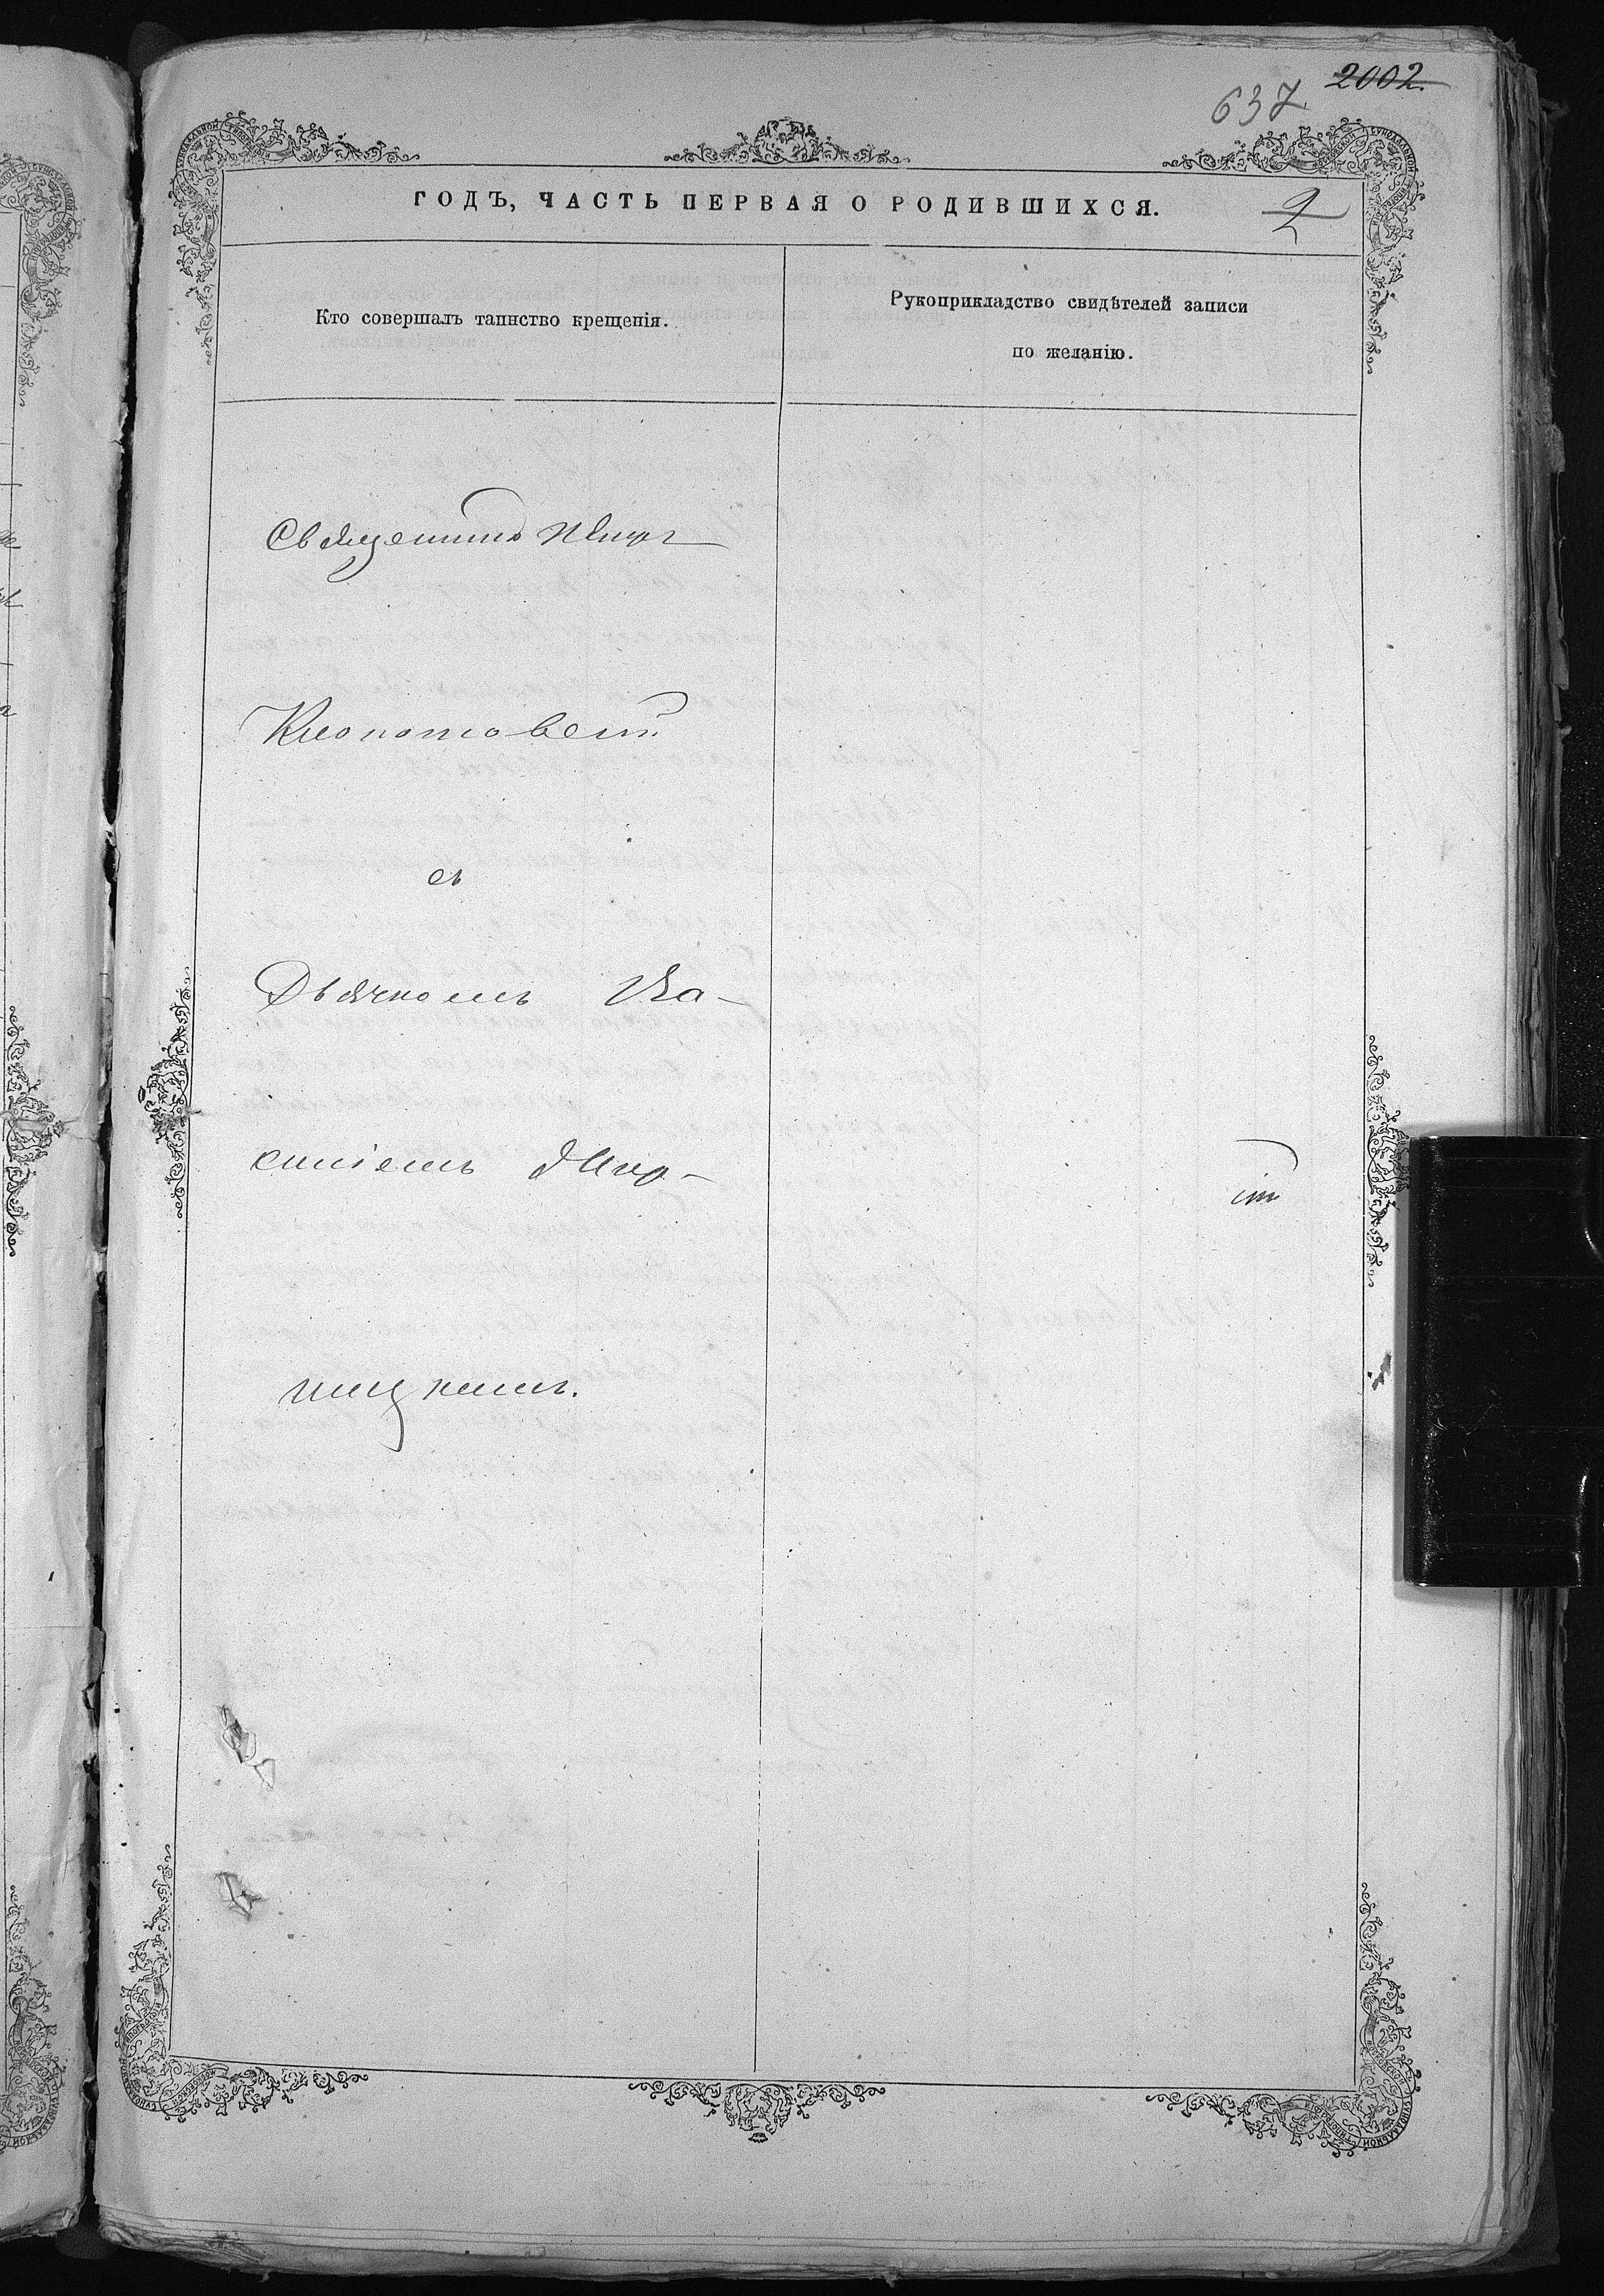 2002.
637
ГОДЪ, ЧАСТЬ ПЕРВАЯ О РОДИВШИХСЯ.
2
Кто совершалъ таинство крещенія.
Рукоприкладство свидѣтелей записи
по желанію.
Священникъ
Клопотовскій
съ
Дьячкомъ Ва-
силіемъ
ницкимъ.